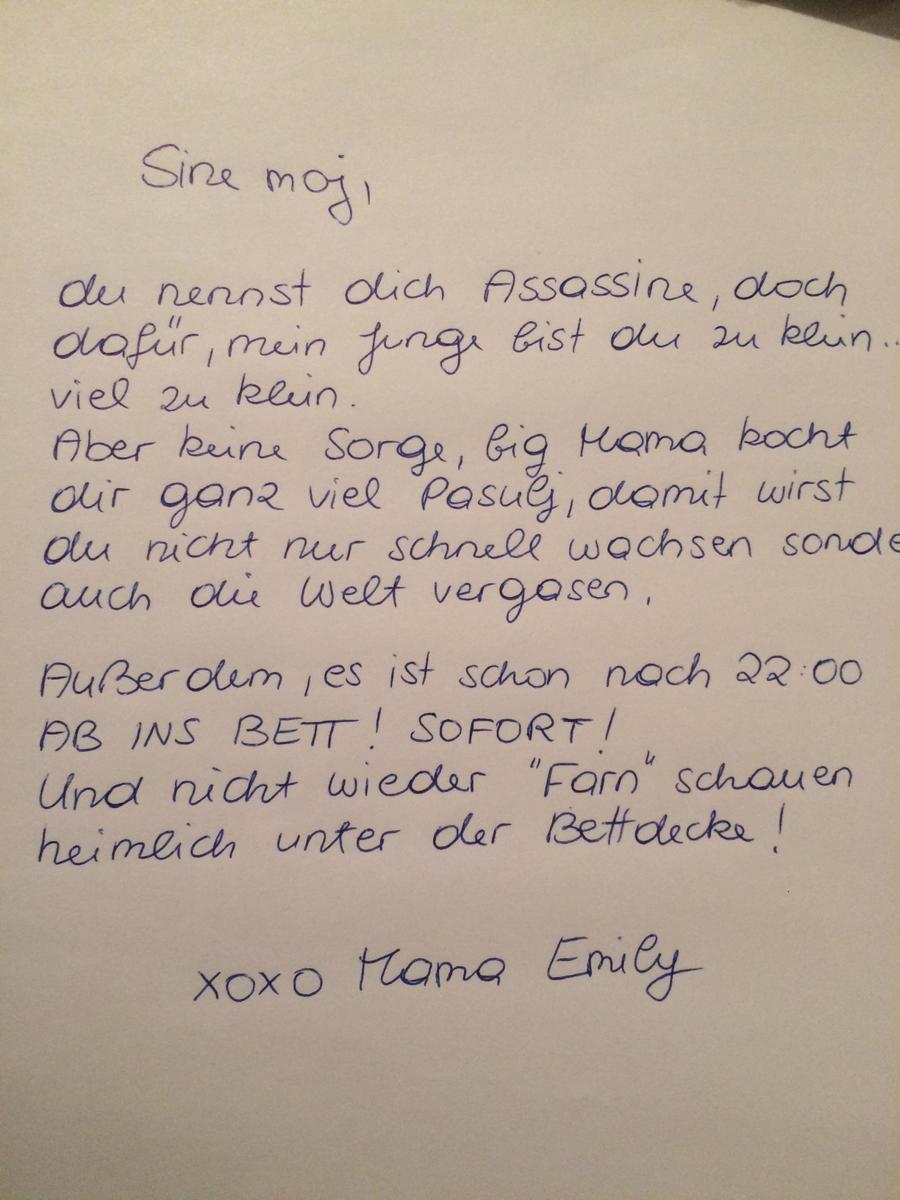 Sine moj,
du nennst dich Assassine, doch
dafür, mein Junge bist du zu klein..
viel zu klein.
Aber keine Sorge, big Mama kocht
dir ganz viel Pasulj, damit wirst
du nicht nur schnell wachsen sonde
auch die Welt vergasen.
Außerdem, es ist schon nach 22:00
AB INS BETT! SOFORT!
Und nicht wieder "Farn" schauen
heimlich unter der Bettdecke!
xoxo Mama Emily